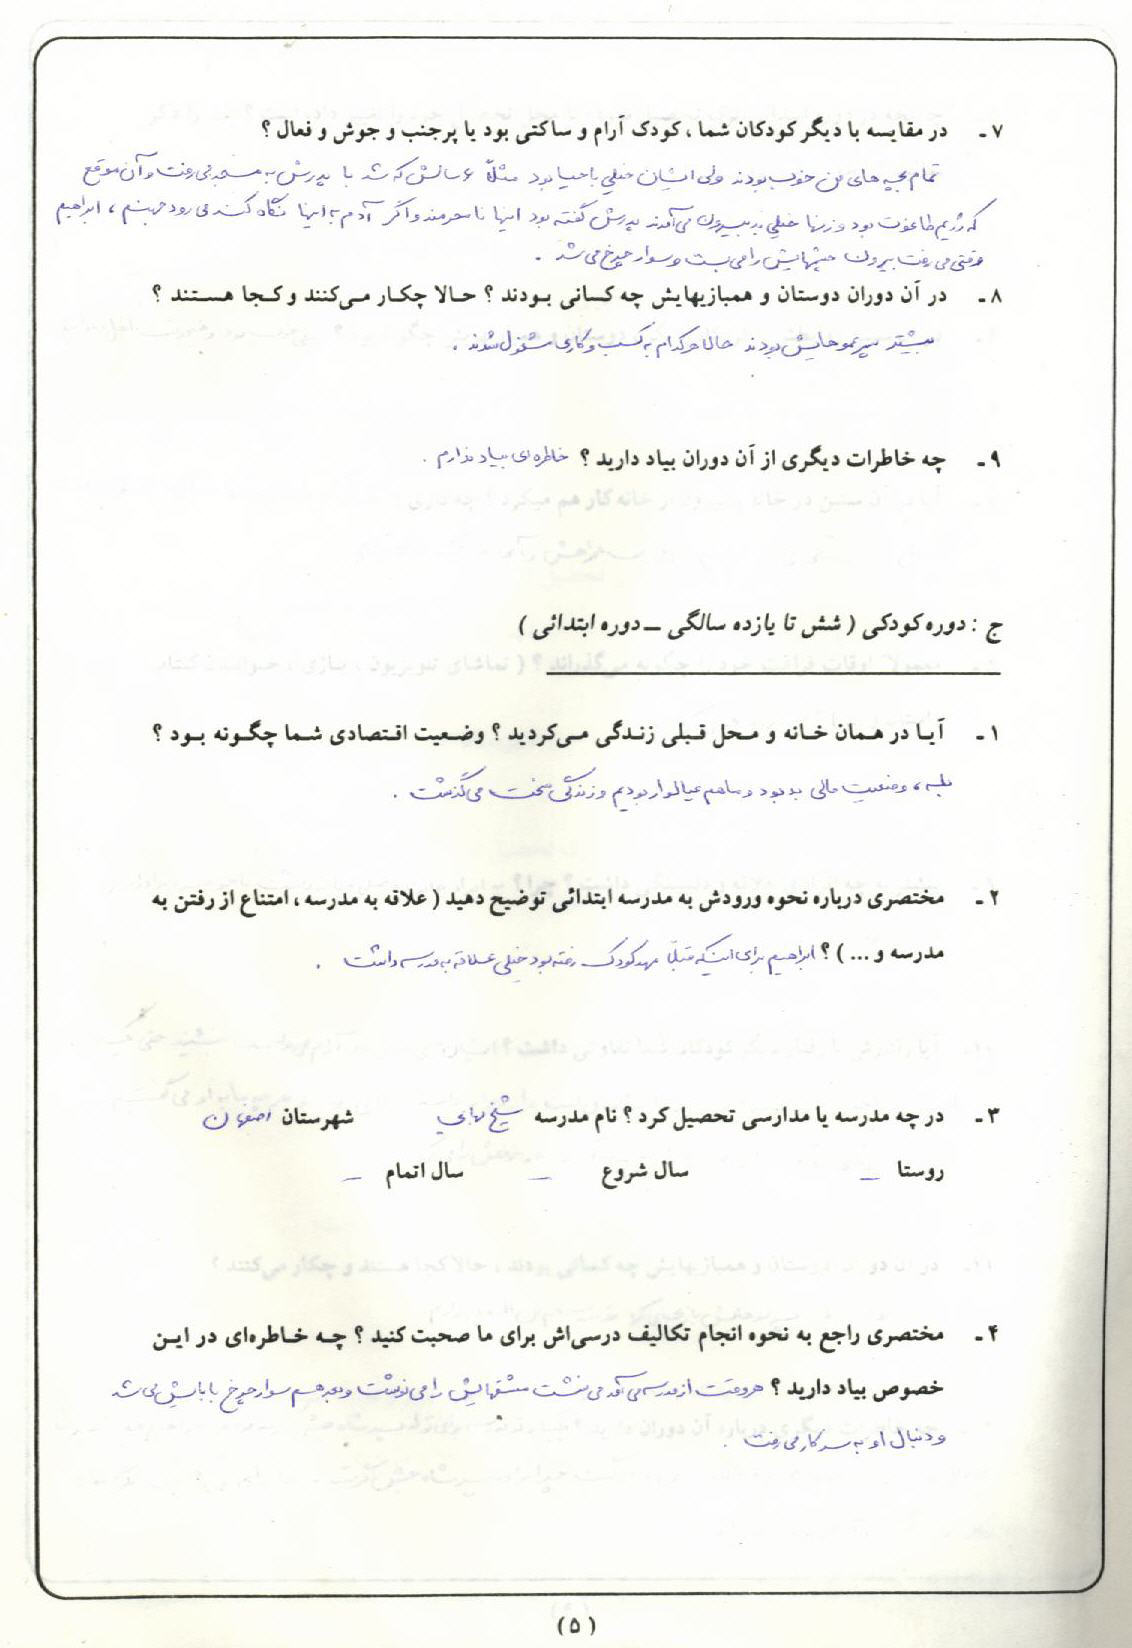 ۷ـ در مقایسه با دیگر کودکان شما ، کودک آرام و ساکتی بود یا پرجنب و جوش و فعال ؟
تمام بچه های من خوب بودند ولی ایشان خیلی با حیا بود مثلاً ۶ سالش که شد با پدرش به مسجد می رفت و آن موقع
که رژیم طاغوت بود و زنها خیلی بد بیرون می آمدند پدرش گفته بود اینها نامحرمند و اگر آدم به اینها نگاه کند می رود جهنم ، ابراهیم
وقتی می رفت بیرون چشهایش را می بست و سوار چرخ می شد .
۸ـ در آن دوران دوستان و همبازیهایش چه کسانی بودند ؟ حالا چکار می‌کنند و کجا هستند ؟
بیشتر پسر عموهایش بودند حالا هر کدام به کسب و کاری مشغول شدند .
۹ـ چه خاطرات دیگری از آن دوران بیاد دارید ؟ خاطره ای بیاد ندارم .
ج : دوره کودکی ( شش تا یازده سالگی ــ دوره ابتدائی )
۱ـ آیا در همان خانه و محل قبلی زندگی می‌کردید ؟ وضعیت اقتصادی شما چگونه بود ؟
بله ، وضعیت مالی بد بود و ما هم عیالوار بودیم و زندگی سخت می گذشت .
۲ـ مختصری درباره نحوه ورودش به مدرسه ابتدائی توضیح دهید ( علاقه به مدرسه ، امتناع از رفتن به
مدرسه و ... ) ؟ ابراهیم برای اینکه قبلاً مهد کودک رفته بود خیلی علاقه به مدرسه داشت .
۳ـ در چه مدرسه یا مدارسی تحصیل کرد ؟ نام مدرسه شیخ بهایی شهرستان اصفهان
روستا ـ سال شروع ـ سال اتمام ـ
۴ـ مختصری راجع به نحوه انجام تکالیف درسی‌اش برای ما صحبت کنید ؟ چه خاطره‌ای در این
خصوص بیاد دارید ؟ هر وقت از مدرسه می آمد می نشست مشقهایش را می نوشت و بعد هم سوار چرخ باباش می شد
و دنبال او به سر کار می رفت .
( ۵ )